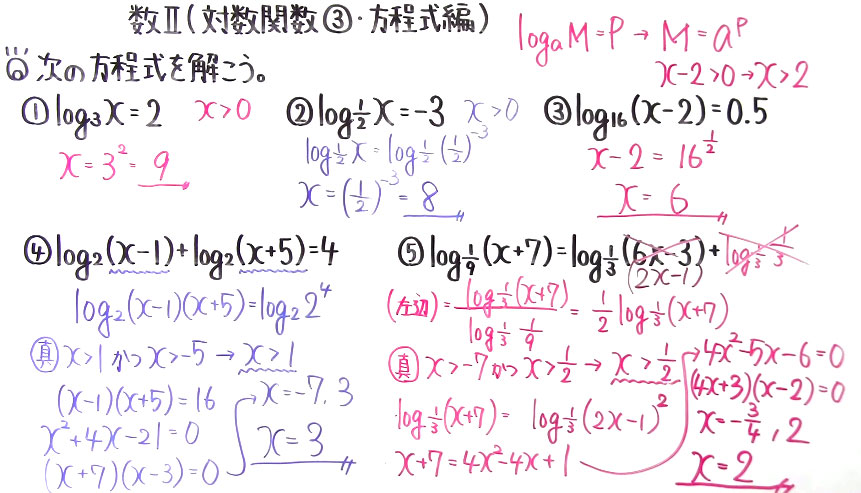 数Ⅱ(対数関数③・方程式編)
logₐM=P → M=aᴾ
◎次の方程式を解こう。
x-2>0→x>2
①log₃x=2 x>0
x=3²=9
②log_{1/2}x=-3 x>0
log_{1/2}x=log_{1/2}(1/2)⁻³
x=(1/2)⁻³=8
③log₁₆(x-2)=0.5
x-2=16^{1/2}
x=6
④log₂(x-1)+log₂(x+5)=4
log₂(x-1)(x+5)=log₂2⁴
真 x>1かつx>-5→x>1
(x-1)(x+5)=16
x²+4x-21=0
(x+7)(x-3)=0
x=-7,3
x=3
⑤log_{1/9}(x+7)=log_{1/3}(6x-3)+log_{1/3}1/3
(2x-1)
(左辺)=log_{1/3}(x+7)/log_{1/3}1/9=1/2log_{1/3}(x+7)
真 x>-7かつx>1/2→x>1/2
log_{1/3}(x+7)=log_{1/3}(2x-1)²
x+7=4x²-4x+1
4x²-5x-6=0
(4x+3)(x-2)=0
x=-3/4,2
x=2